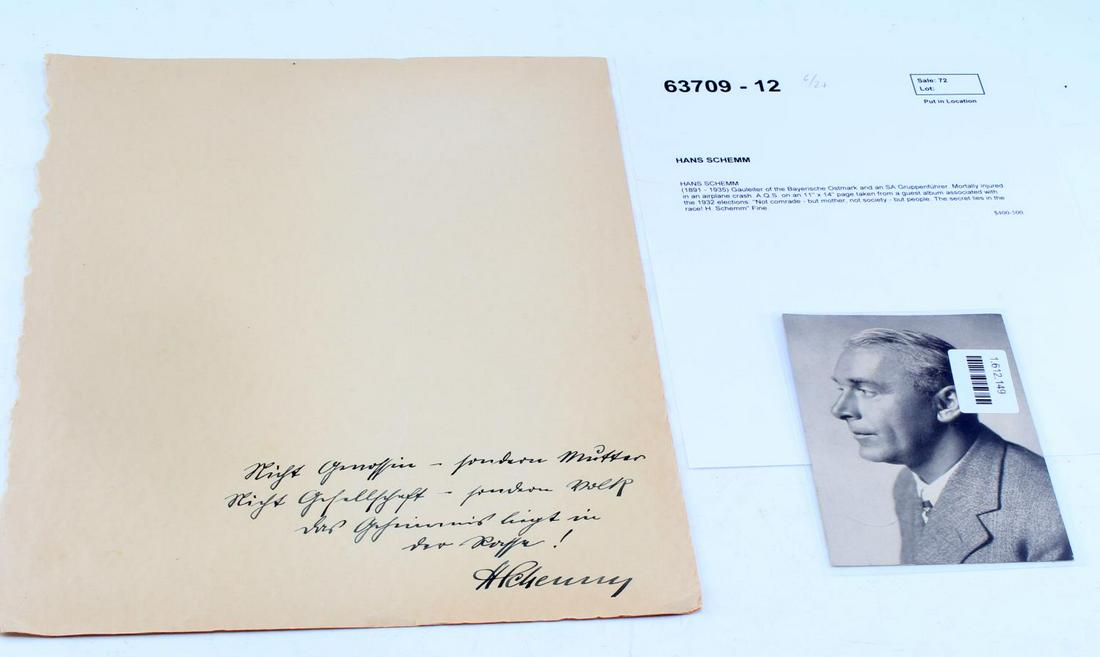 Nicht Genossin – sondern Mutter
Nicht Gesellschaft – sondern Volk
das Geheimnis liegt in
der Rasse!
HSchemm
63709 - 12
Sale: 72
Lot:
Put in Location
HANS SCHEMM
HANS SCHEMM
(1891 - 1935) Gauleiter of the Bayerische Ostmark and an SA Gruppenführer. Mortally injured
in an airplane crash. A.Q.S. on an 11" x 14" page taken from a guest album associated with
the 1932 elections: "Not comrade - but mother, not society - but people. The secret lies in the
race! H. Schemm" Fine.
$400-500
1,612,149